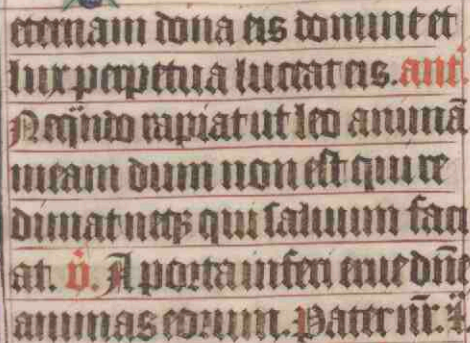 eternam dona eis domine et
lux perpetua luceat eis. ant̄.
Neq̄ndo rapiat ut leo animā
meam dum non est qui re
dimat neqꝫ qui saluum faci
at. v̄. A porta inferi erue dn̄e
animas eorum. Pater nr̄.